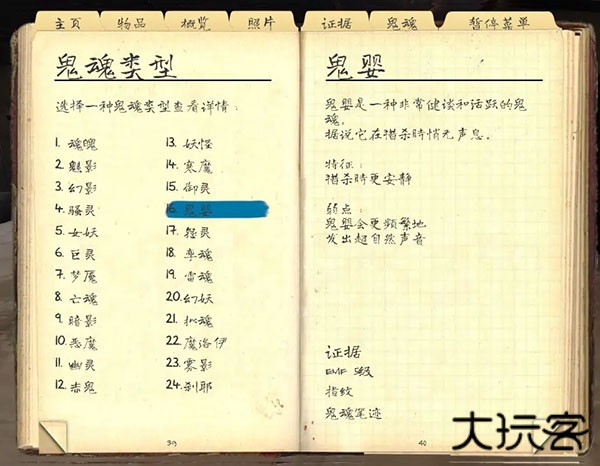 主页 物品 概览 照片 证据 鬼魂 暂停菜单
鬼魂类型
选择一种鬼魂类型查看详情：
1. 魂魄
2. 魅影
3. 幻影
4. 骚灵
5. 女妖
6. 巨灵
7. 梦魇
8. 亡魂
9. 暗影
10. 恶魔
11. 幽灵
12. 赤鬼
13. 妖怪
14. 寒魔
15. 御灵
16. 鬼婴
17. 怨灵
18. 孪魂
19. 雷魂
20. 幻妖
21. 拟魂
22. 魔洛伊
23. 雾影
24. 刹耶
39
鬼婴
鬼婴是一种非常健谈和活跃的鬼
魂。
据说它在猎杀时悄无声息。
特征：
猎杀时更安静
弱点：
鬼婴会更频繁地
发出超自然声音
证据
EMF 5级
指纹
鬼魂笔迹
40
大玩客